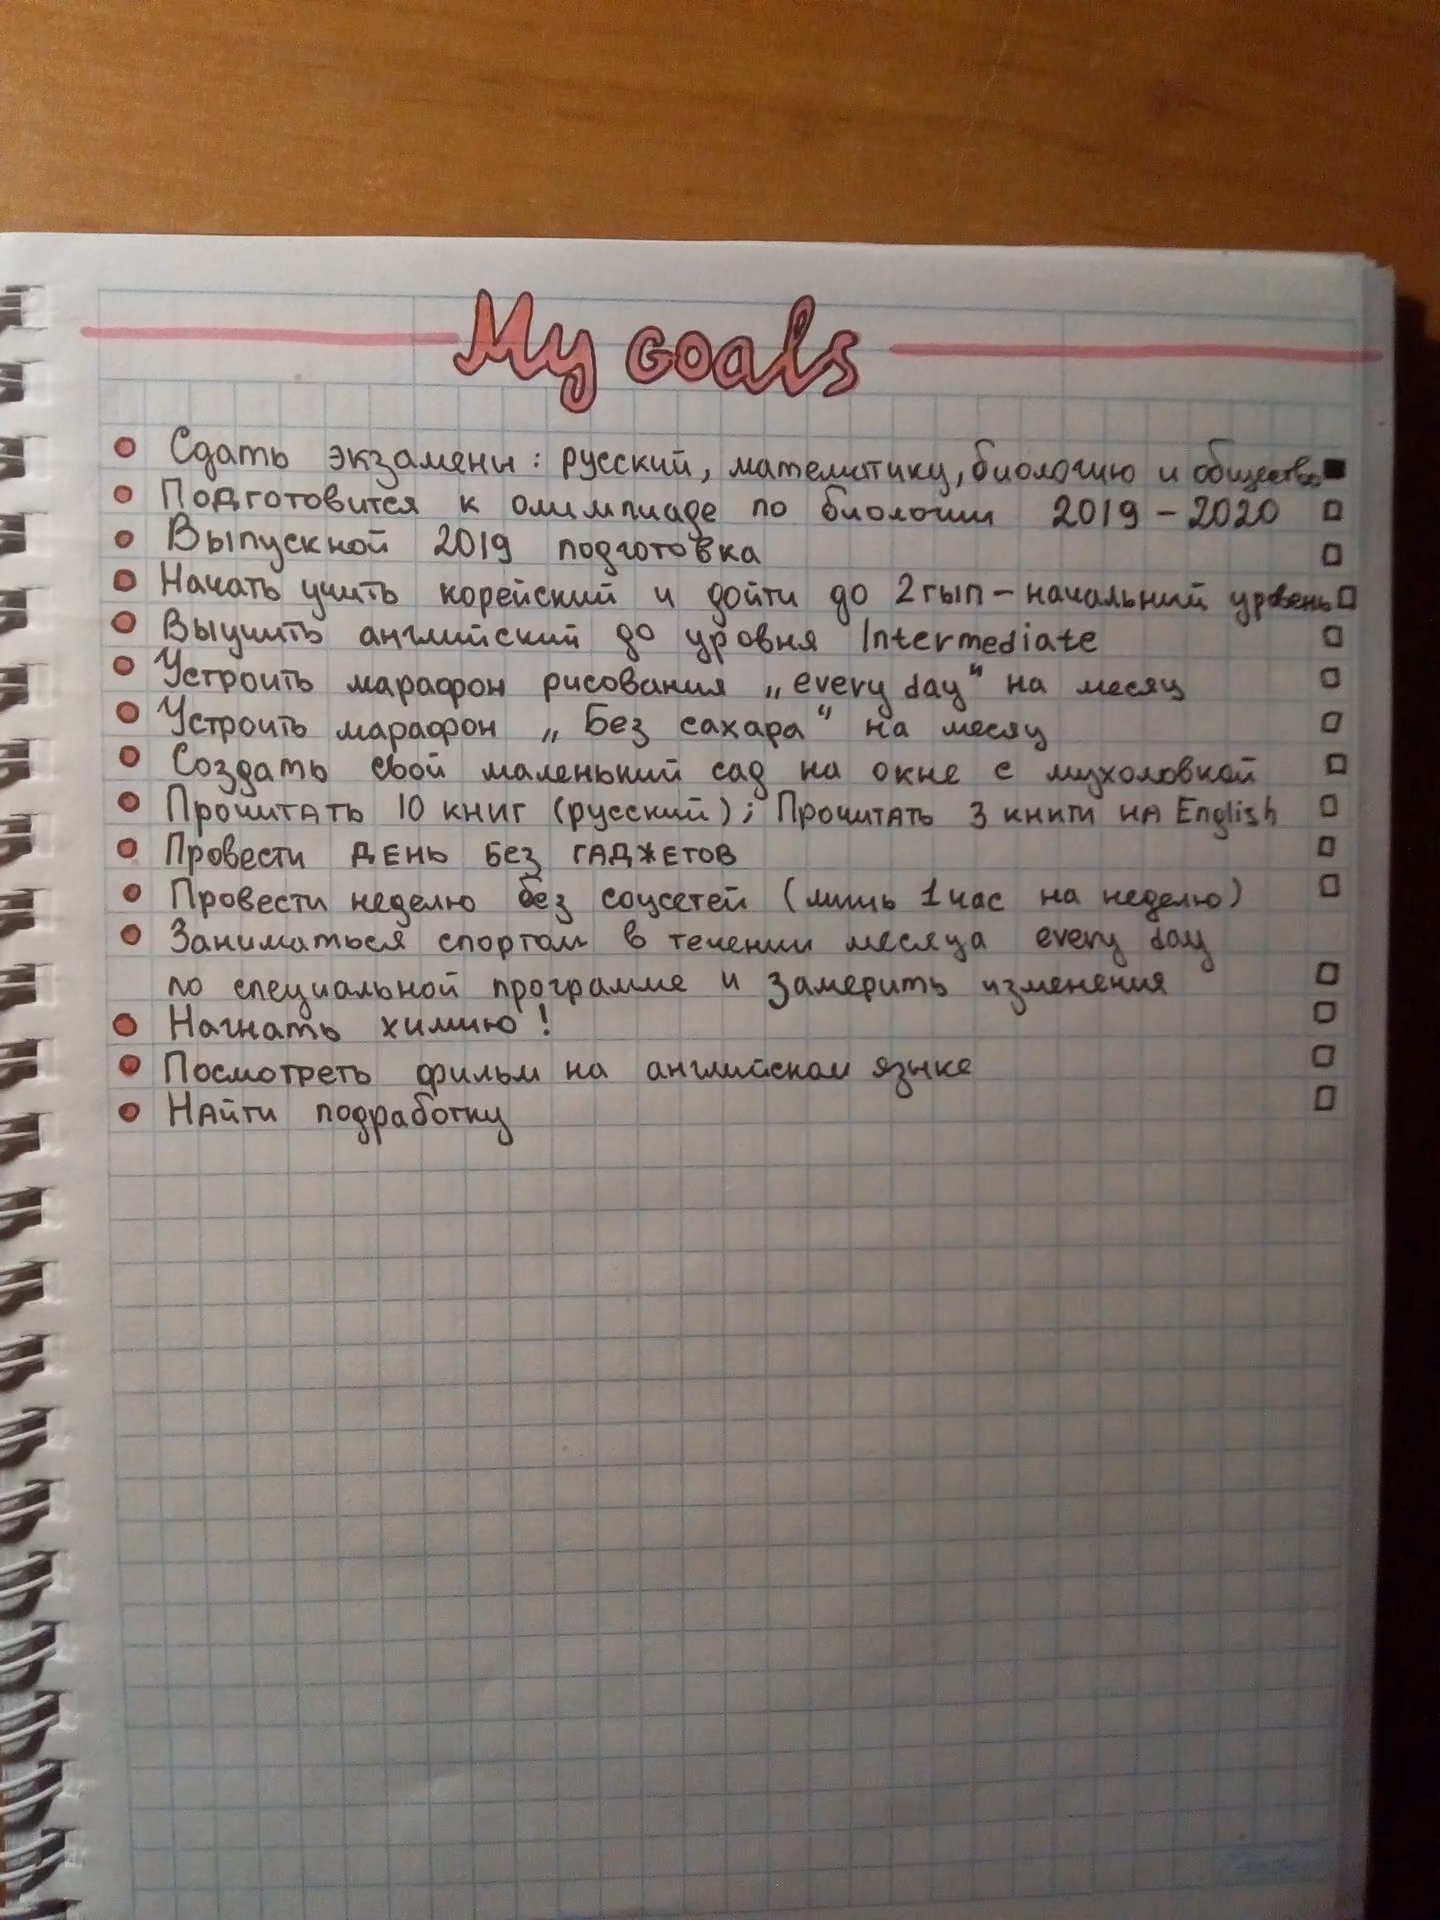 My goals
Сдать экзамены: русский, математику, биологию и общество
Подготовится к олимпиаде по биологии 2019 – 2020
Выпускной 2019 подготовка
Начать учить корейский и дойти до 2 гып – начальный уровень
Выучить английский до уровня Intermediate
Устроить марафон рисования „every day“ на месяц
Устроить марафон „Без сахара“ на месяц
Создать свой маленький сад на окне с мухоловкой
Прочитать 10 книг (русский); Прочитать 3 книги на English
Провести ДЕНЬ без ГАДЖЕТОВ
Провести неделю без соцсетей (лишь 1 час на неделю)
Заниматься спортом в течении месяца every day
по специальной программе и замерить изменения
Нагнать химию!
Посмотреть фильм на английском языке
Найти подработку